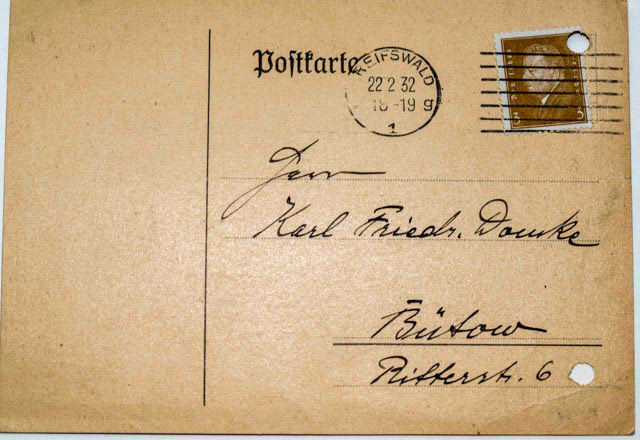 Postkarte
GREIFSWALD
22 2 32
18-19 g
1
3 3
Herrn
Karl Friedr. Domke
Bütow
Ritterstr. 6